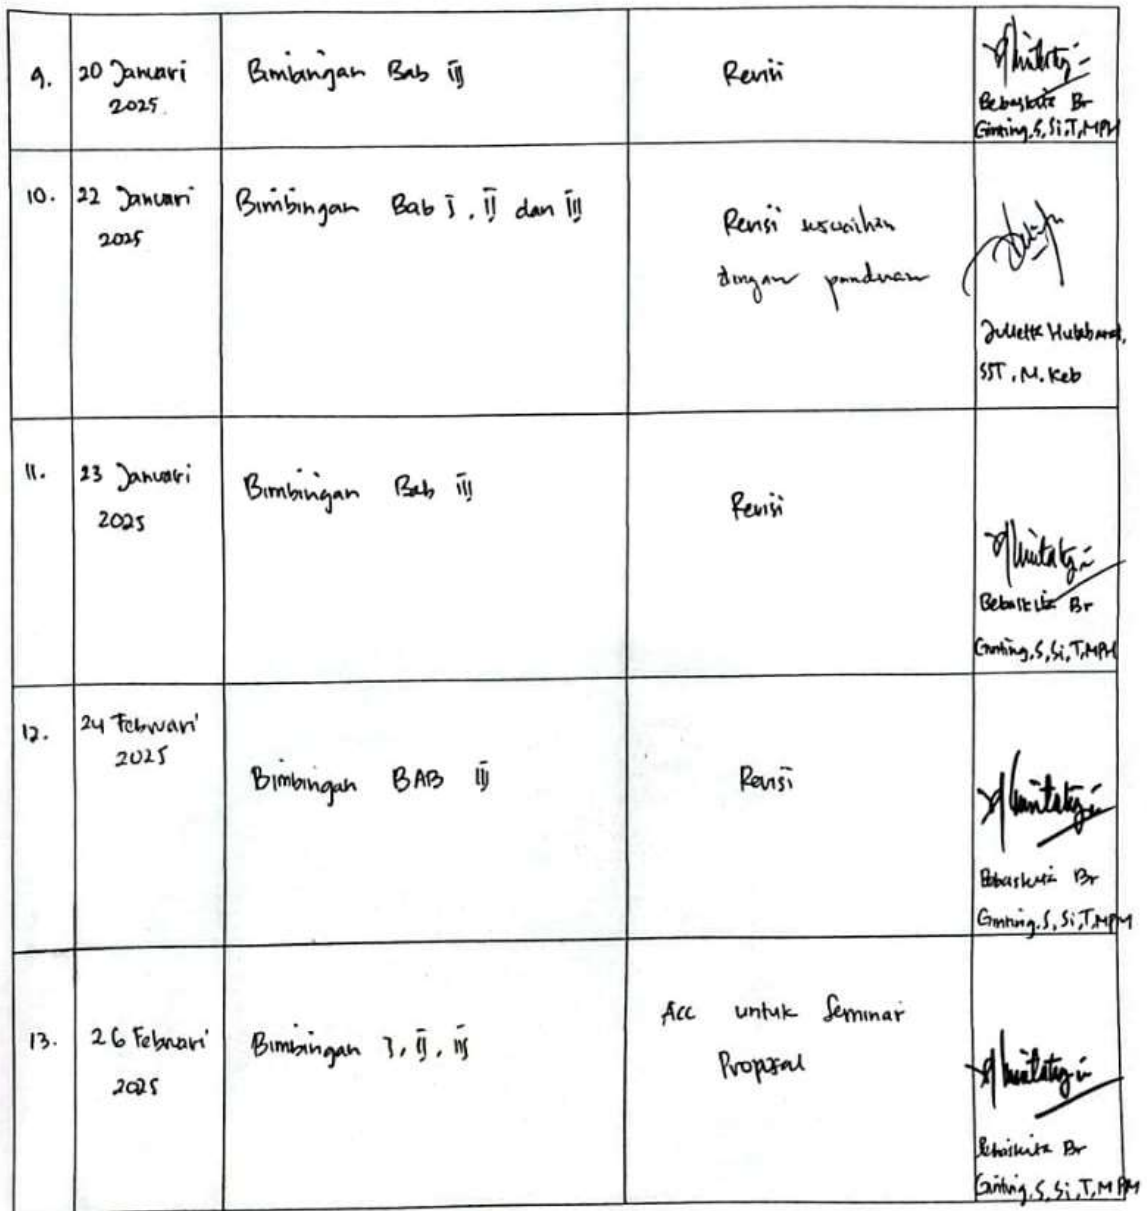 9.
20 Januari
2025.
Bimbingan Bab III
Revisi
Bebaskita Br
Ginting, S, Si, T, MPH
10.
22 Januari
2025
Bimbingan Bab I, II dan III
Revisi sesuaikan
dengan panduan
Julietta Hutabarat,
SST, M. Keb
11.
23 Januari
2025
Bimbingan Bab III
Revisi
Bebaskita Br
Ginting, S, Si, T, MPH
12.
24 Februari
2025
Bimbingan BAB III
Revisi
Bebaskita Br
Ginting, S, Si, T, MPH
13.
26 Februari
2025
Bimbingan I, II, III
Acc untuk Seminar
Proposal
Bebaskita Br
Ginting, S, Si, T, MPH